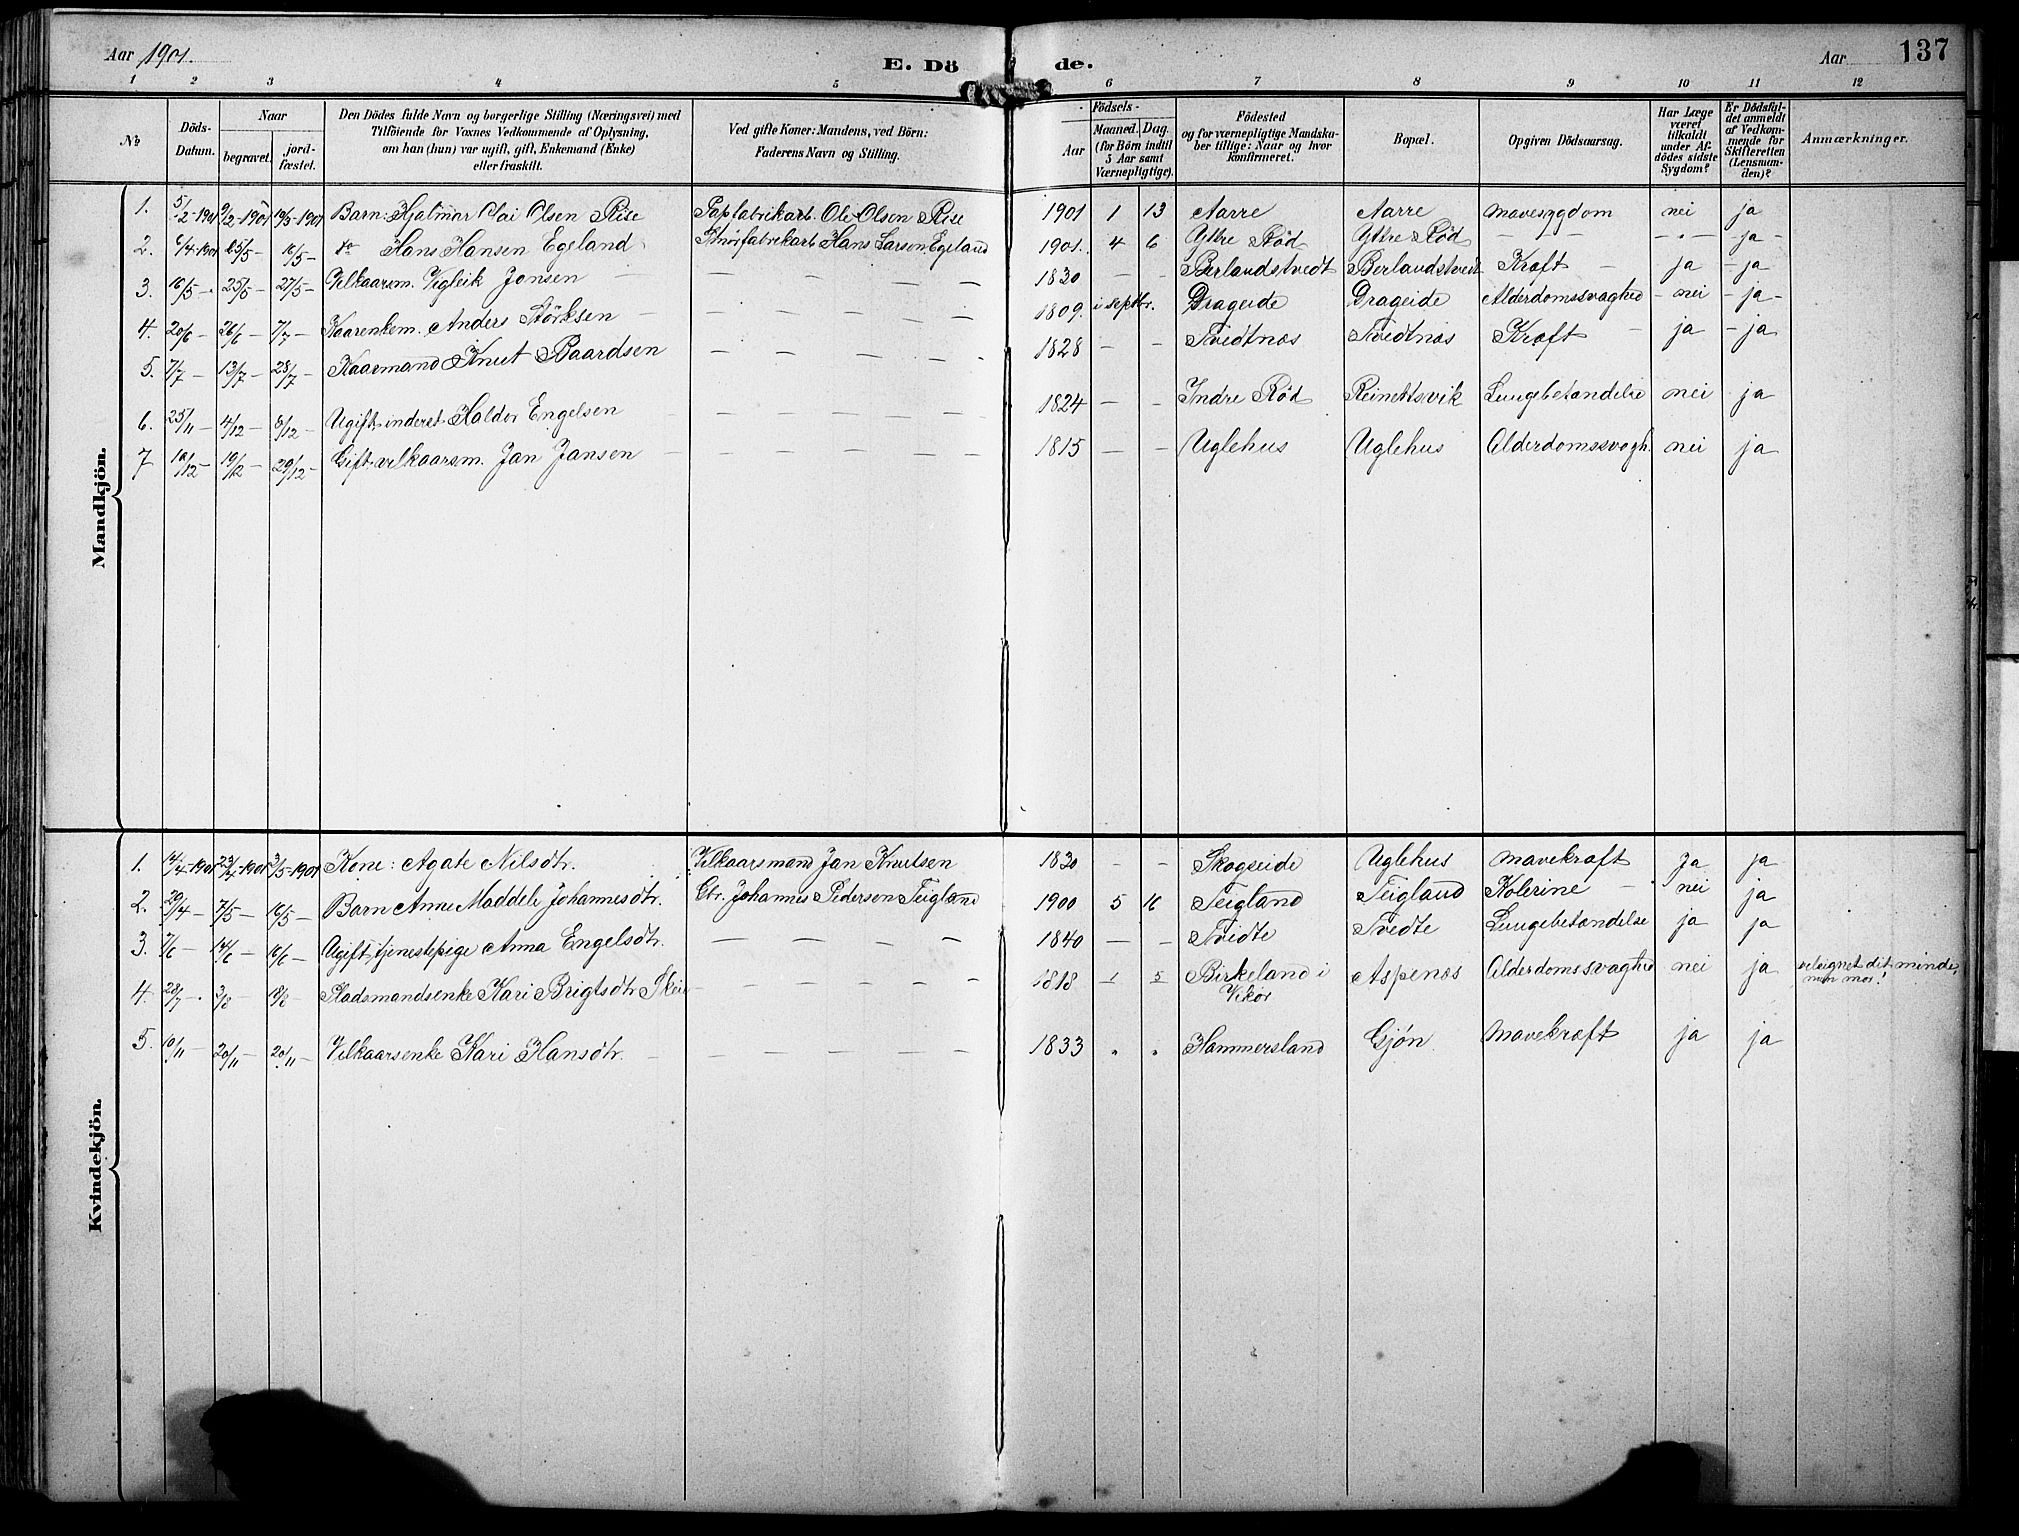 Aar 1901.
E. Döde.
Aar 137
1 2 3 4 5 6 7 8 9 10 11 12
No
Döds-Datum.
Naar
begravet.
jordfæstet.
Den Dödes fulde Navn og borgerlige Stilling (Næringsvei) med
Tilföiende for Voxnes Vedkommende af Oplysning,
om han (hun) var ugift, gift, Enkemand (Enke)
eller fraskilt.
Ved gifte Koner: Mandens, ved Börn:
Faderens Navn og Stilling.
Födsels-
Aar
Maaned. Dag.
(for Börn indtil
5 Aar samt
Værnepligtige).
Födested
og for værnepligtige Mandskaber
tillige: Naar og hvor
konfirmeret.
Bopæl.
Opgiven Dödsaarsag.
Har Læge
været
tilkaldt
under Afdödes
sidste
Sygdom?
Er Dödsfaldet
anmeldt
af Vedkommende
for
Skifteretten
(Lensmanden)?
Anmærkninger.
Mandkjön.
1. 5/2-1901 9/2-1901 19/5-1901 Barn: Hjalmar Olsen Rise Papfabrikarb. Ole Olsen Rise 1901 1 13 Aarre Aarre mavesygdom nei ja
2. 6/4-1901 25/5- 16/5- do Hans Hansen Egeland Snörfabrikarb Hans Larsen Egeland 1901. 4 6 Ytre Röd Ytre Röd — - — — - — - ja -
3. 16/5- 25/5- 27/5- Vilkaarsm. Vigleik Jonsen — — — — — 1830 — - Berlandstvedt Berlandstvedt Kræft - ja - ja
4. 20/6- 26/6- 7/7- Kaarenkem. Anders Störksen — — — — — 1809. i septbr. Drageide Drageide Alderdomssvaghed - nei - ja -
5. 7/7- 13/7- 28/7- Kaarmand Knut Baardsen — — — — — 1828 — - Tvedtnæs Tvedtnæs Kræft - ja - ja
6. 25/11- 4/12- 8/12- Ugift inderst Haldor Engelsen — — — — — 1824 — - Indre Röd Reinertsvik Lungebetændelse nei ja
7 10/12- 19/12- 29/12- Gift vilkaarsm. Jan Jansen — — — — — 1815 — - Uglehus Uglehus Alderdomssvagh. nei ja
Kvindekjön.
1. 14/4-1901 23/4-1901 3/5-1901 Kone: Agate Nilsdtr. Vilkaarsmand Jan Knutsen 1830 - - Skogseide Uglehus mavekræft Ja ja
2. 29/4- 7/5- 16/5- Barn Anne Maddeli Johannesdtr. Gbr. Johannes Pederson Teigland 1900 5 16 Teigland Teigland Kolerine - nei ja
3. 7/6- 14/6- 16/6- Ugift tjenestepige Anna Engelsdtr. — — — — — 1840 — - Tvedte Tvedte Lungebetændelse ja ja
4. 28/7. 3/8- 18/8- Pladsmandsenke Kari Brigtsdtr — — — — — 1818 1 5 Birkeland i Vikör Aspenæs Alderdomssvaghed nei ja velsignet dit minde, min mor!
5. 10/11- 20/11- 20/11- Vilkaarsenke Kari Hansdtr. — — — — — 1833 " " Hammersland Gjön mavekræft ja ja